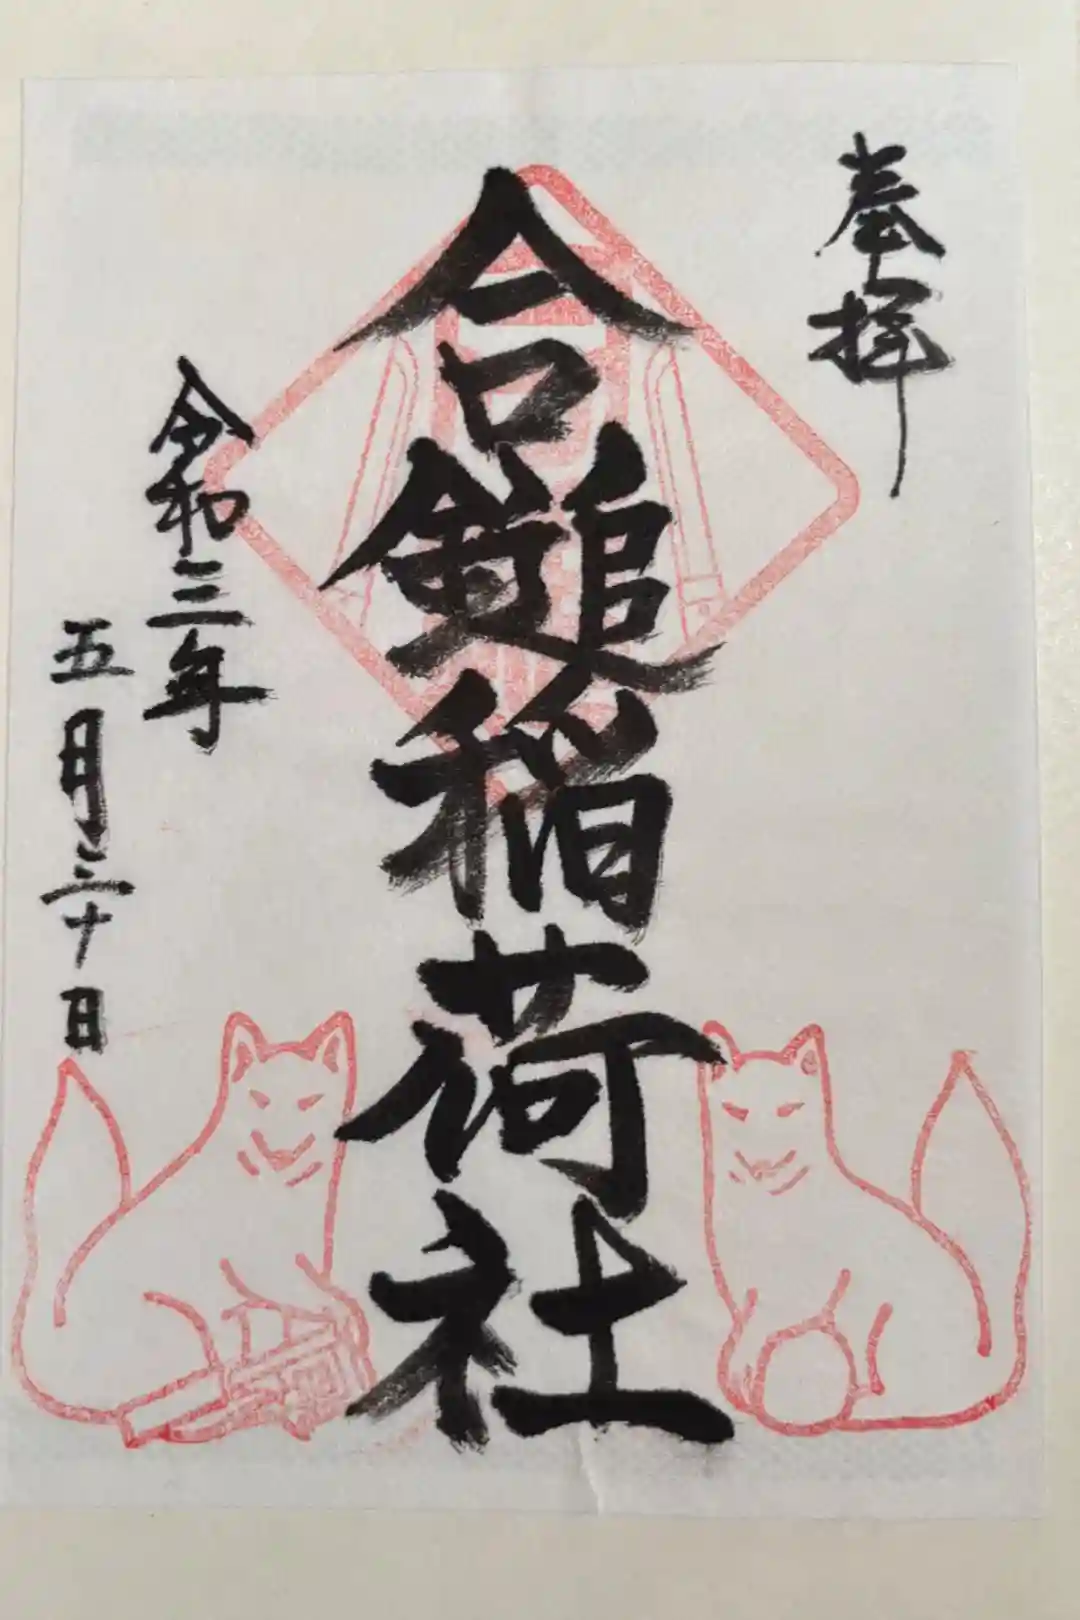 奉拝
合鎚稲荷社
令和三年
五月三十日